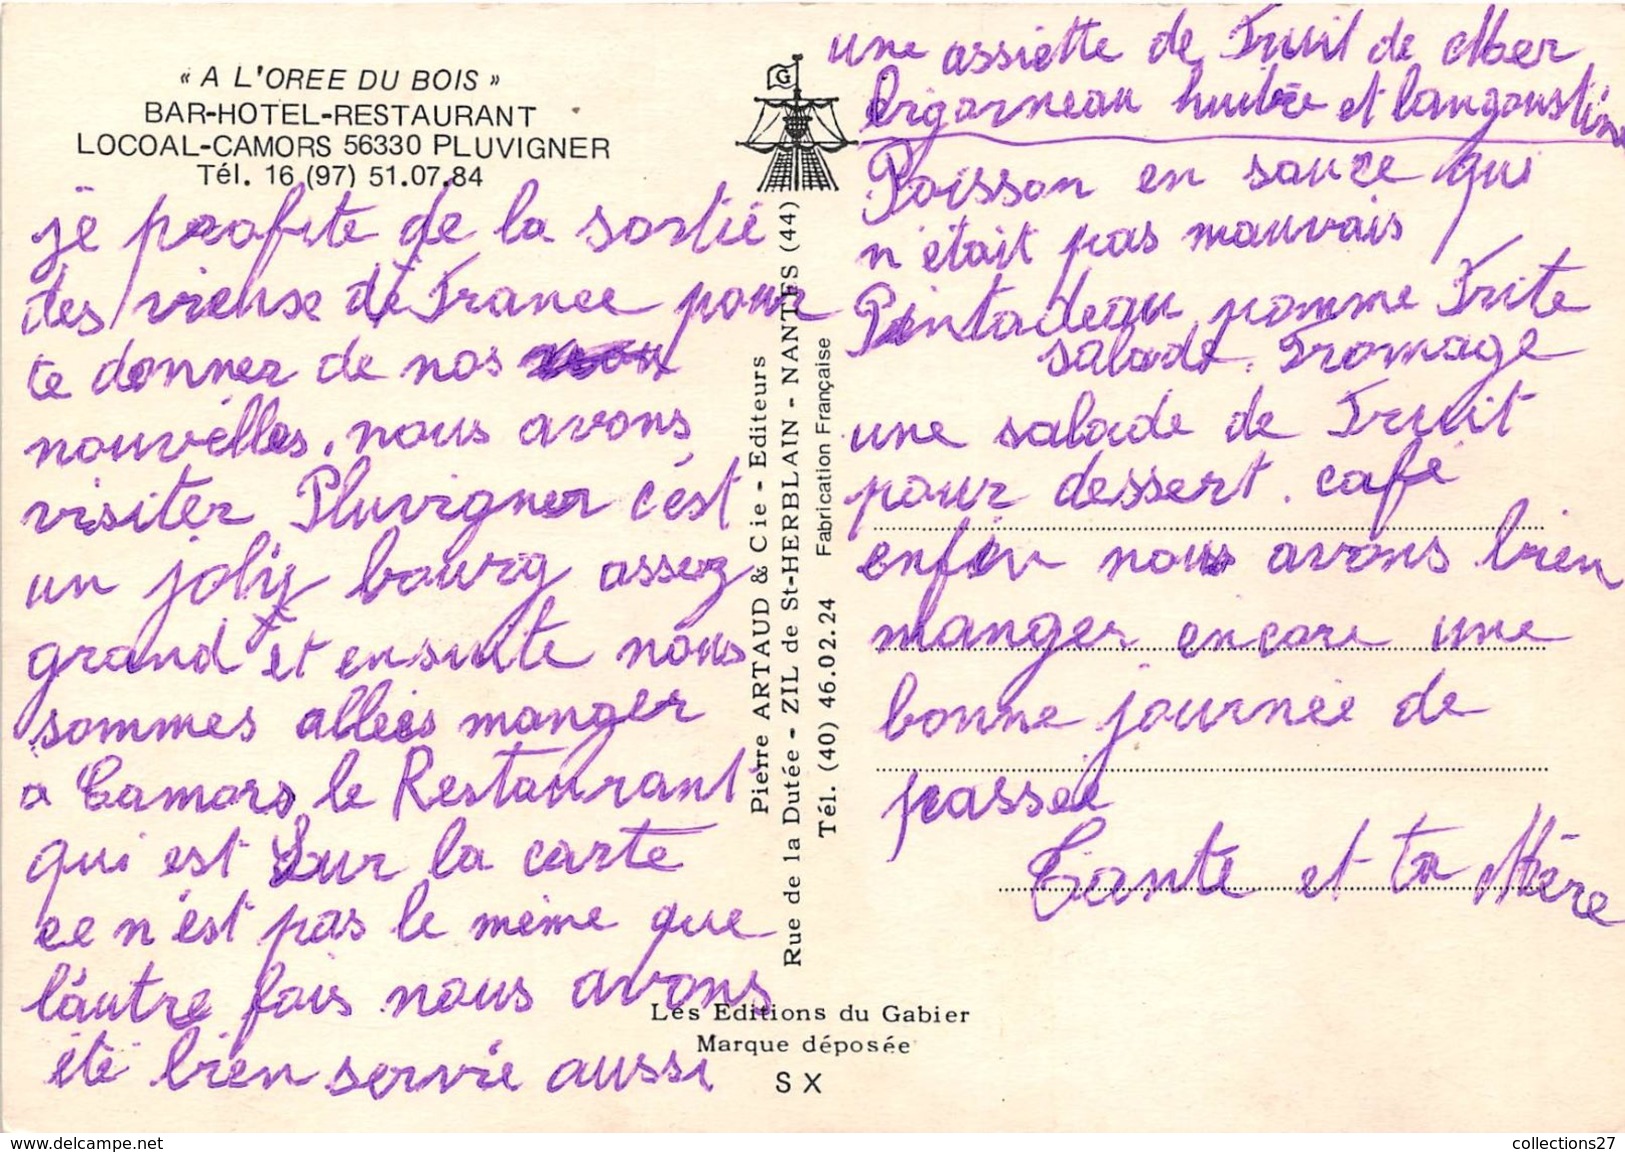 « A L'OREE DU BOIS »
BAR-HOTEL-RESTAURANT
LOCOAL-CAMORS 56330 PLUVIGNER
Tél. 16 (97) 51.07.84
je profite de la sortié
des vieuse de France pour
te donner de nos
nouvélles. nous avons
visiter Pluvigner c'est
un joliy bourg assez
grand et ensuite nous
sommes alleés manger
a Camors le Restaurant
qui est Sur la carte
ce n'est pas le même que
l'autre fois nous avons
été bien servie aussi
G
Pierre ARTAUD & Cie - Editeurs
Rue de la Dutée - ZIL de St-HERBLAIN - NANTES (44)
Tél. (40) 46.02.24 Fabrication Française
Les Editions du Gabier
Marque déposée
S X
une assiette de Fruit de Mer
bigorneau huitre et langoustine
Poisson en sauce qui
n'était pas mauvais
Pintadeau pomme Frite
salade. Fromage
une salade de Fruit
pour dessert. café
enfin nous avons bien
manger encore une
bonne journée de
passée
Tante et ta Mère
www.delcampe.net
collections27